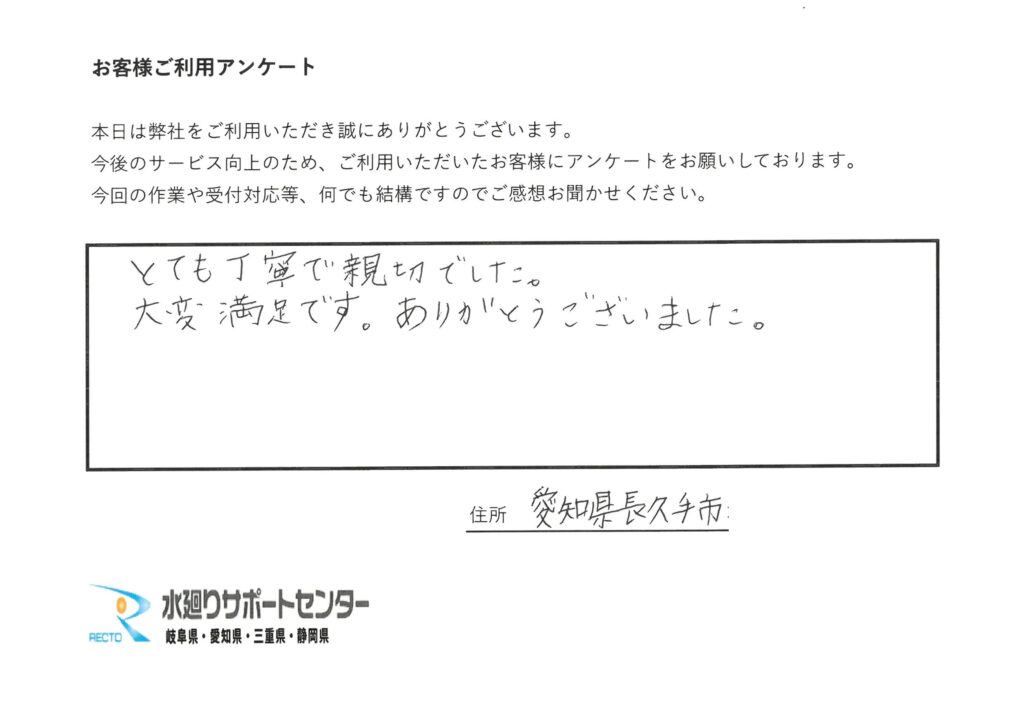 お客様ご利用アンケート
本日は弊社をご利用いただき誠にありがとうございます。
今後のサービス向上のため、ご利用いただいたお客様にアンケートをお願いしております。
今回の作業や受付対応等、何でも結構ですのでご感想お聞かせください。
とても丁寧で親切でした。
大変満足です。ありがとうございました。
住所 愛知県長久手市
RECTO 水廻りサポートセンター
岐阜県・愛知県・三重県・静岡県